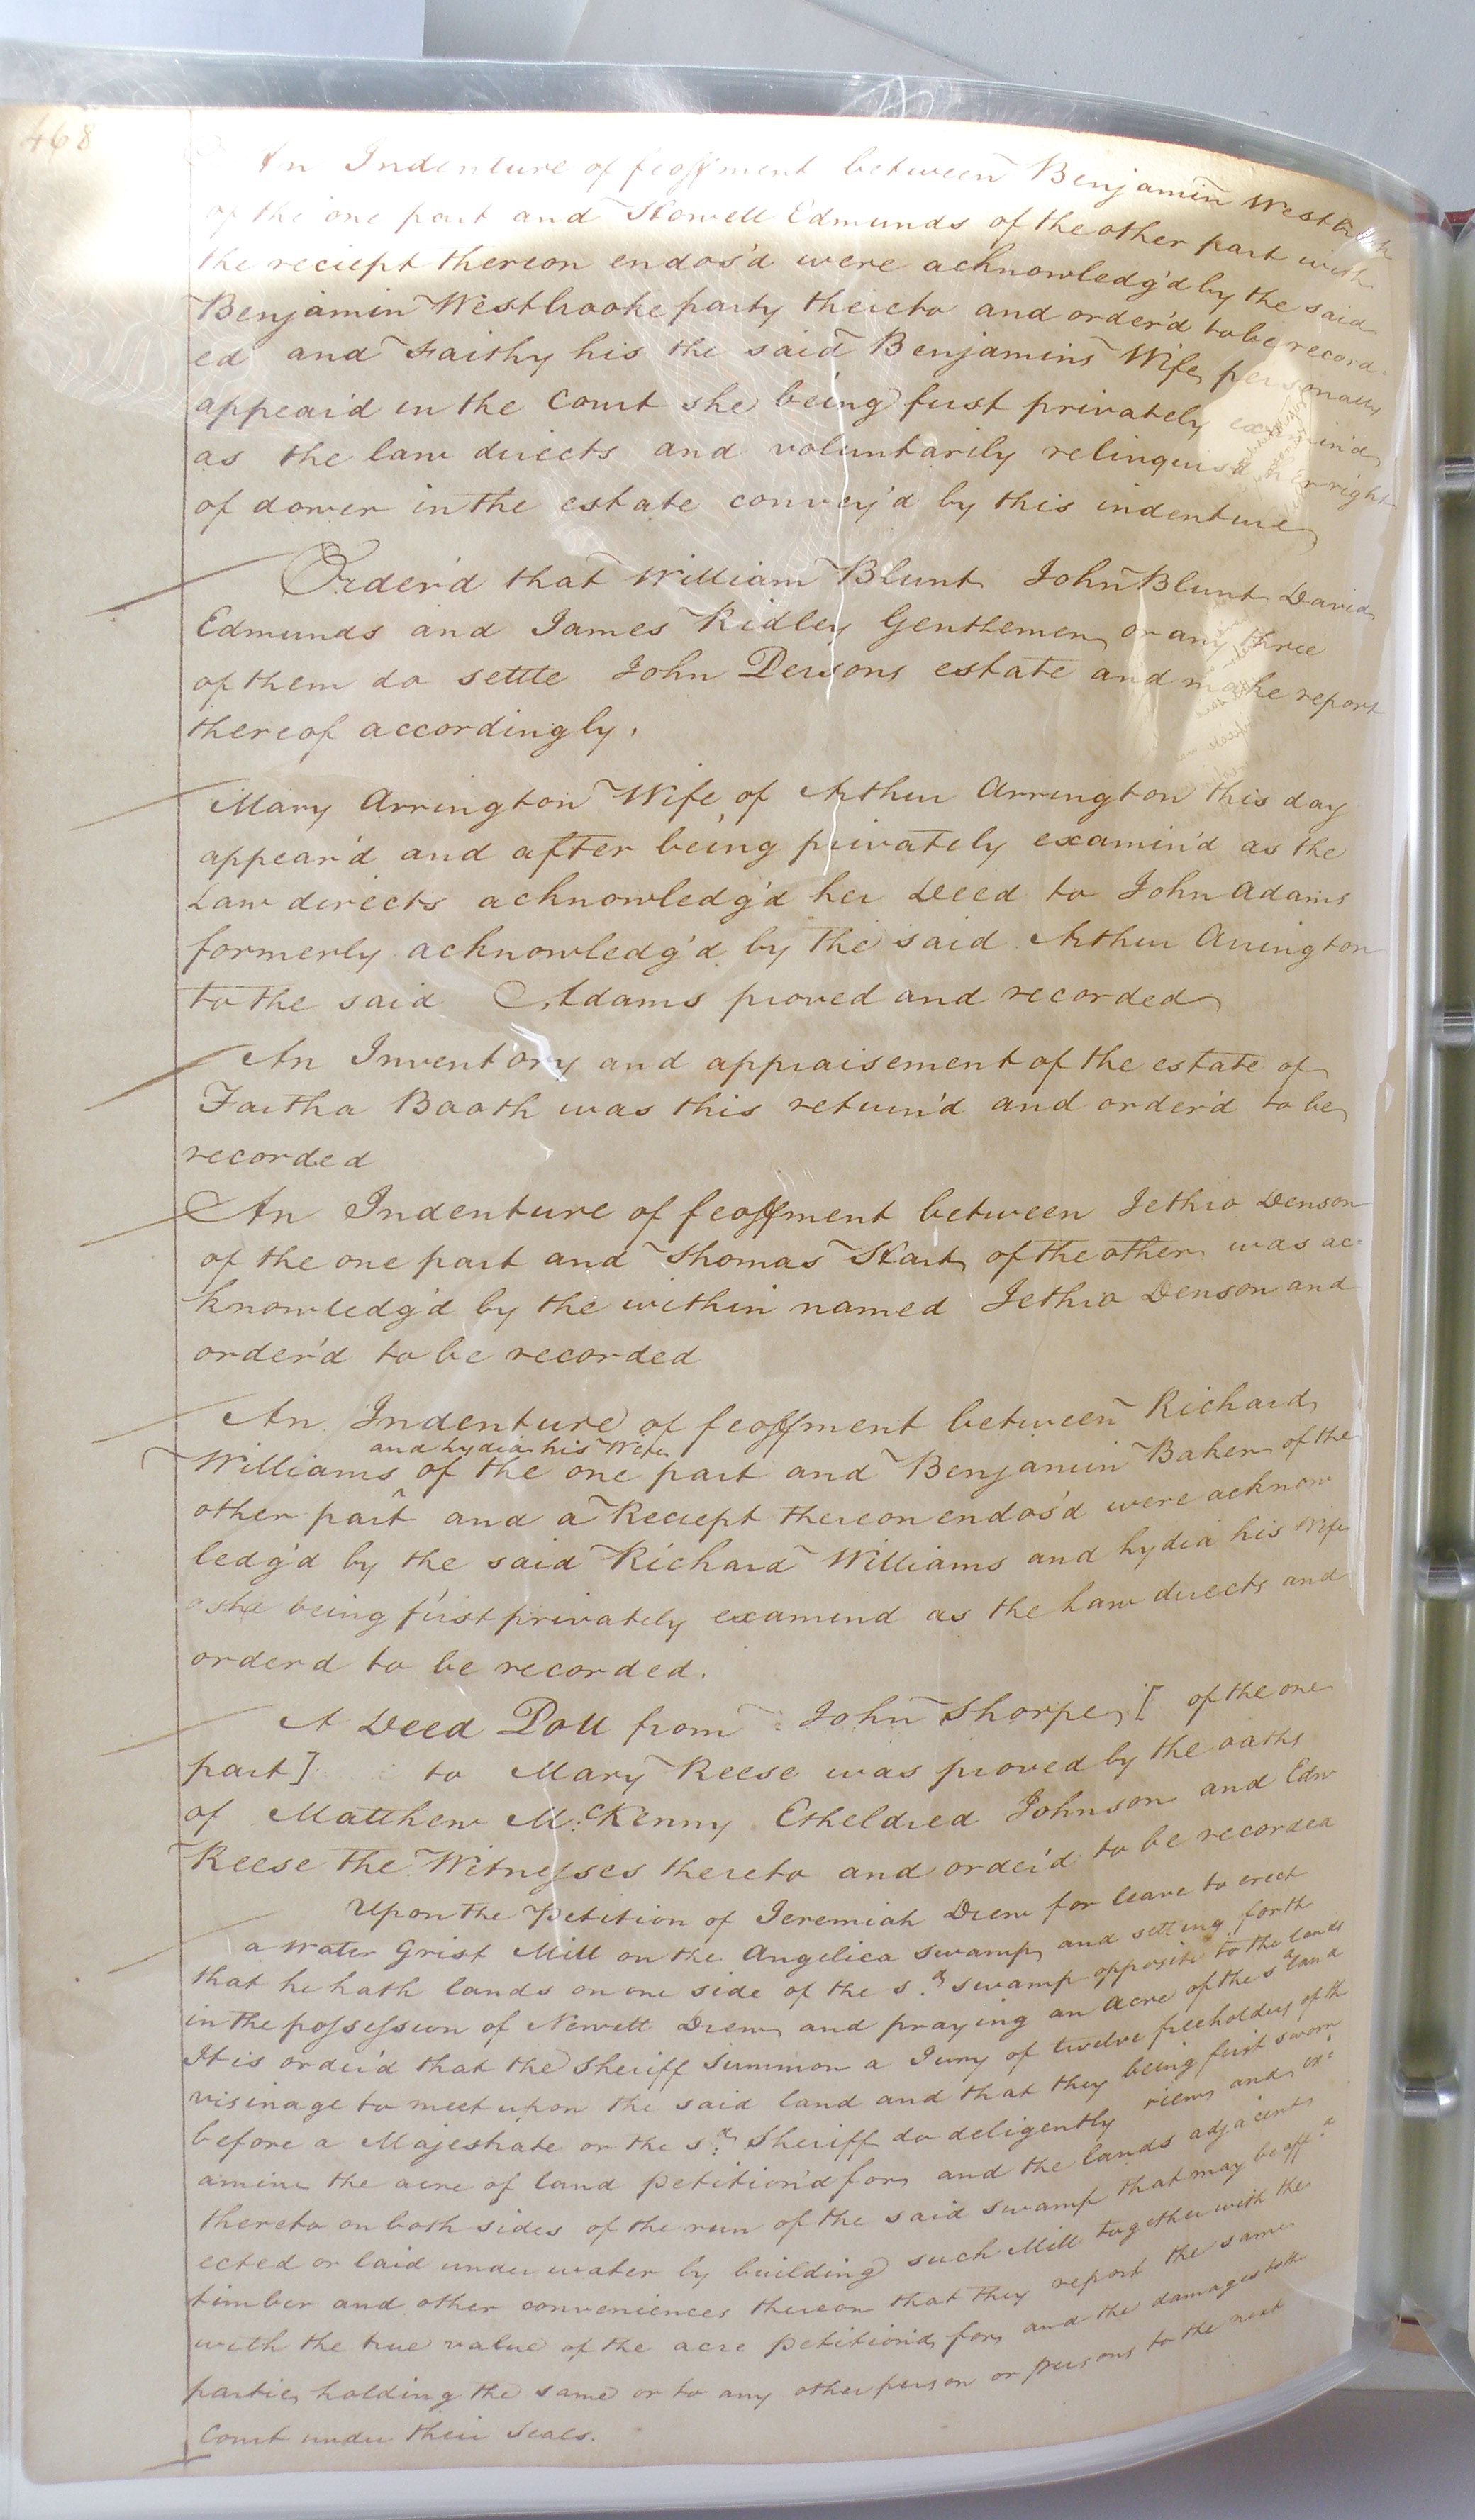 468
An Indenture of feoffment between Benjamin Westbrook
of the one part and Howell Edmunds of the other part with
the reciept thereon endos'd were acknowledg'd by the said
Benjamin Westbrooke party thereto and order'd to be record-
ed and Faithy his the said Benjamins Wife personally
appear'd in the Court she being first privately examin'd
as the law directs and voluntarily relinquish'd her right
of dower in the estate convey'd by this indenture
Order'd that William Blunt John Blunt David
Edmunds and James Ridley Genthemen or any three
of them do settle John Persons estate and make report
thereof accordingly.
Mary Arrington Wife of Arthur Arrington this day
appear'd and after being privately examin'd as the
Law directs acknowledg'd her Deed to John Adams
formerly acknowledg'd by the said Arthur Arington
to the said Adams proved and recorded
An Inventory and appraisement of the estate of
Faitha Booth was this return'd and order'd to be
recorded
An Indenture of feoffment between Jethro Denson
of the one part and Thomas Hart of the other was ac=
knowledg'd by the within named Jethro Denson and
order'd to be recorded
An Indenture of feoffment between Richard
and Lydia his Wife
Williams of the one part and Benjamin Baker of the
other part and a Reciept thereon endos'd were acknow
ledg'd by the said Richard Williams and Lydia his Wife
she being first privately examind as the Law directs and
orderd to be recorded.
A Deed Poll from John Thorpe [ of the one
part] to Mary Reese was proved by the oaths
of Matthew M:cKenny Etheldred Johnson and Edw
Reese the Witnesses thereto and order'd to be recorded
Upon the Petition of Jeremiah Drew for leave to erect
a Water Grist Mill on the Angelica swamp and setting forth
that he hath lands on one side of the s.d swamp opposite to the lands
in the possession of Newett Drew and praying an acre of the sd land
It is order'd that the Sheriff summon a Jury of twelve freeholders of th
visinage to meet upon the said land and that they being first sworn
before a Majestrate or the s:d Sheriff do deligently view and ex=
amine the acre of land petition'd for and the lands adjacent
thereto on both sides of the run of the said swamp that may be aff=
ected or laid under water by building such Mill together with the
timber and other conveniences thereon that they report the same
with the true value of the acre petition'd for and the damages to the
parties holding the same or to any other person or persons to the next
Court under their Seals.